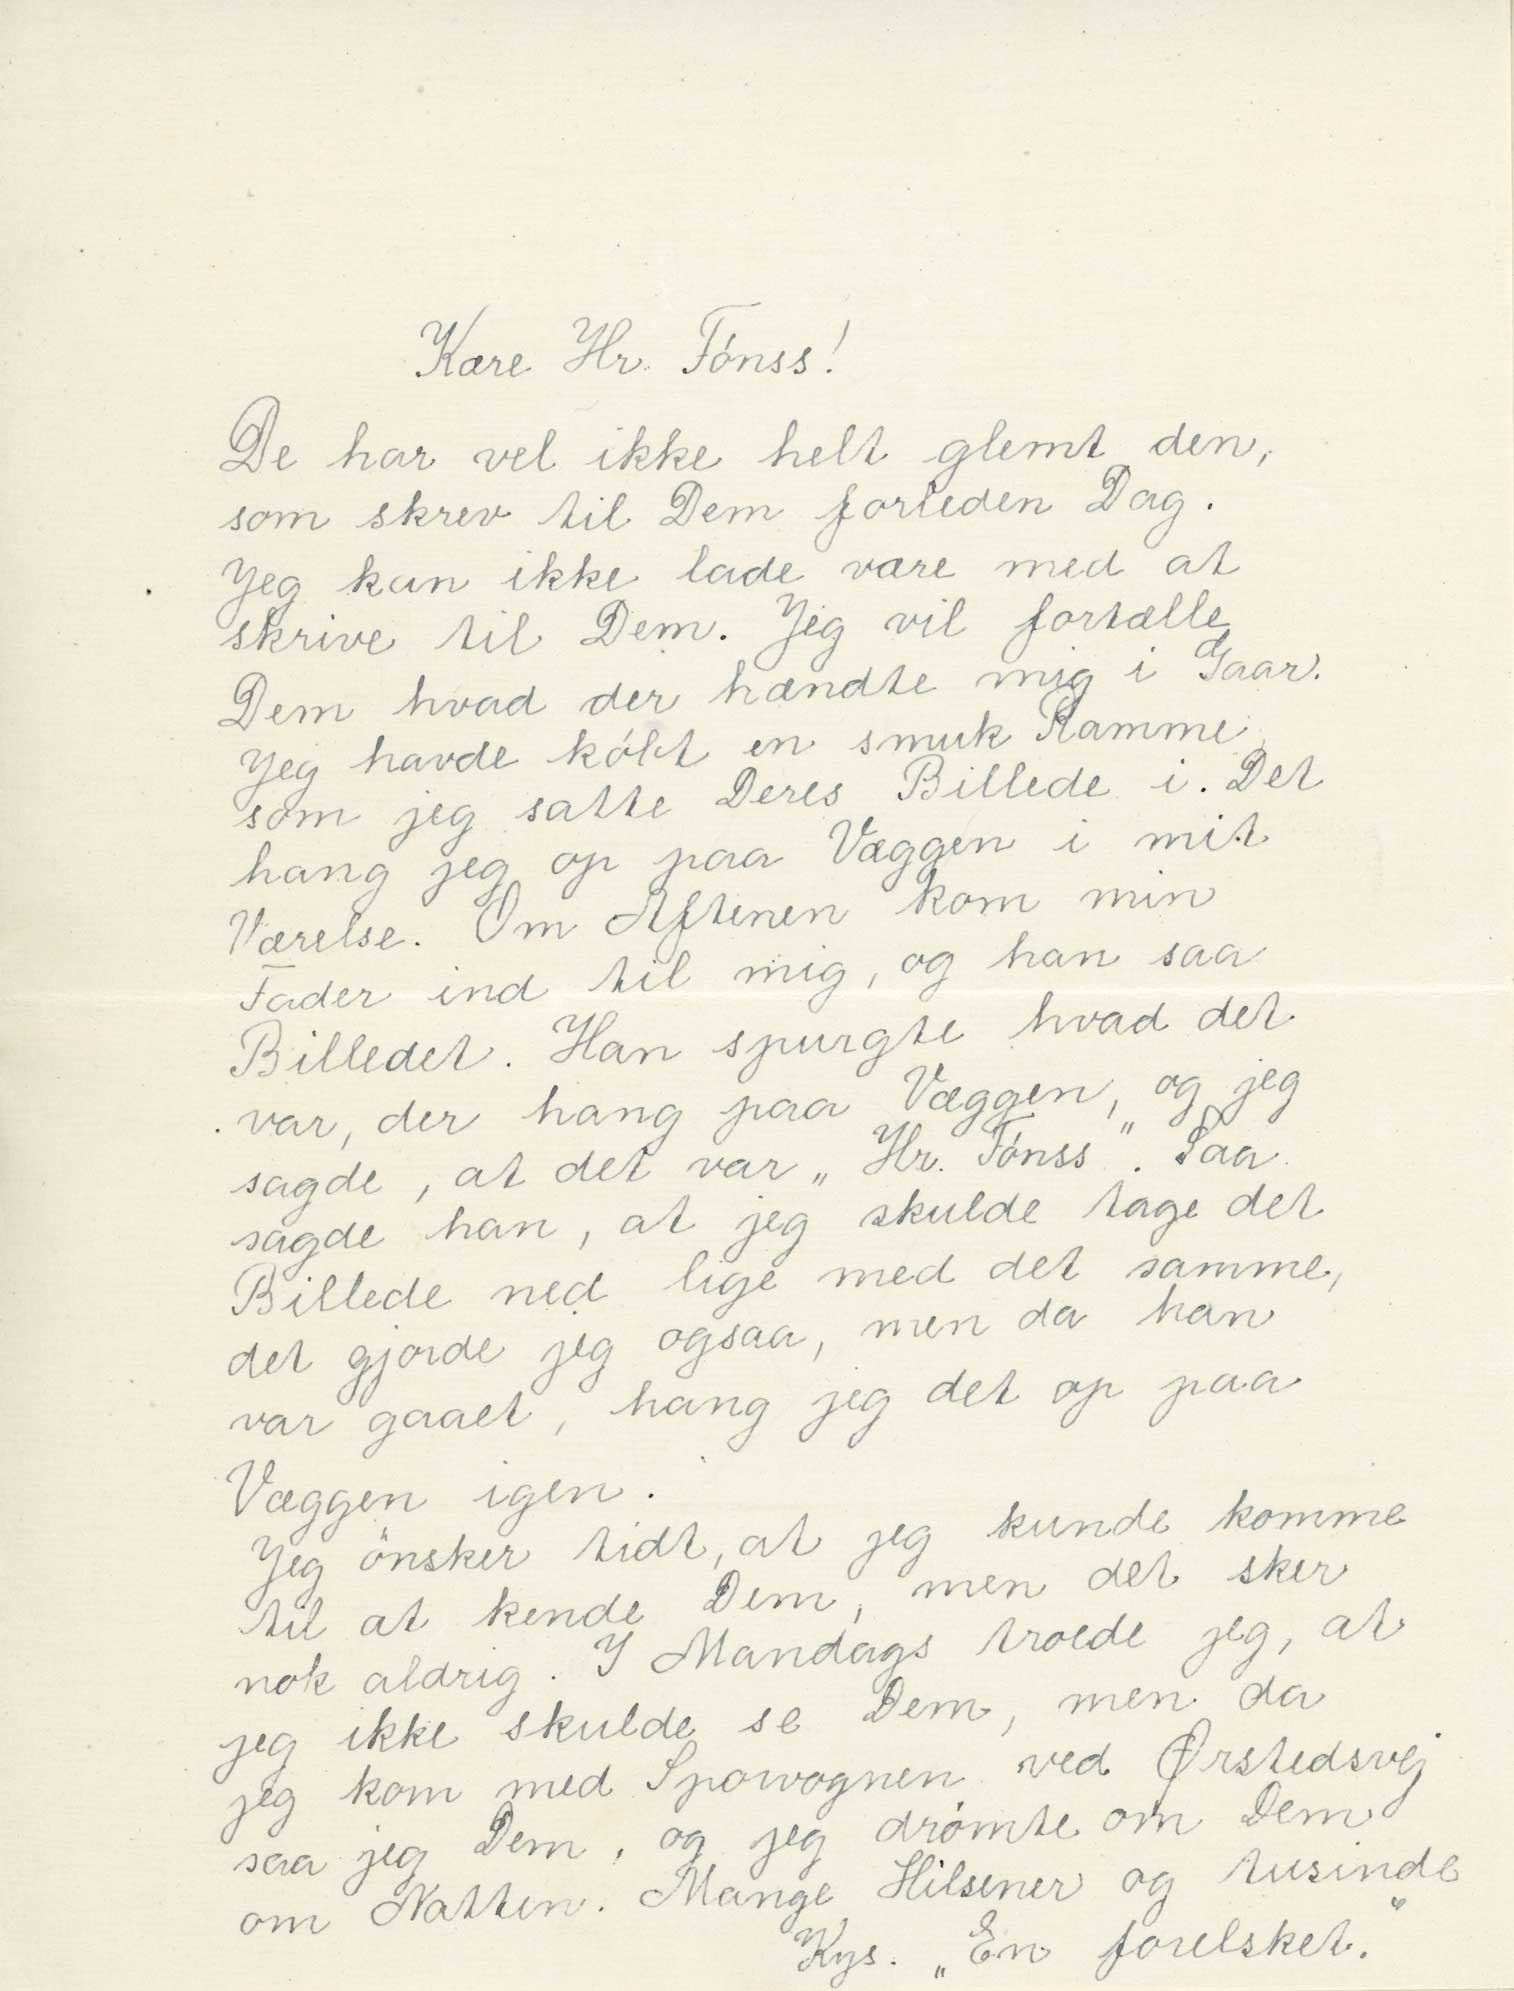 Kære Hr. Tónss!
De har vel ikke helt glemt den,
som skrev til Dem forleden Dag.
Jeg kan ikke lade være med at
skrive til Dem. Jeg vil fortælle
Dem hvad der hændte mig i Gaar.
Jeg havde kóbt en smuk Ramme
som jeg satte Deres Billede i. Det
hang jeg op paa Væggen i mit
Værelse. Om Aftenen kom min
Fader ind til mig, og han saa
Billedet. Han spurgte hvad det
var, der hang paa Væggen, og jeg
sagde, at det var „Hr. Tónss". Saa
sagde han, at jeg skulde tage det
Billede ned lige med det samme,
det gjorde jeg ogsaa, men da han
var gaaet, hang jeg det op paa
Væggen igen.
Jeg önsker tidt, at jeg kunde komme
til at kende Dem, men det sker
nok aldrig. I Mandags troede jeg, at
jeg ikke skulde se Dem, men da
jeg kom med Sporvognen ved Ørstedsvej
saa jeg Dem, og jeg drómte om Dem
om Natten. Mange Hilsener og tusinde
Kys. „En forelsket."